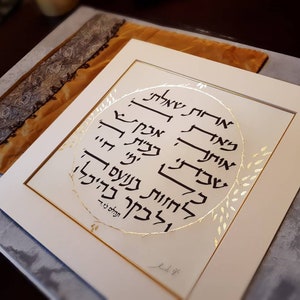 אחת שאלתי
מאת ה
אותה אבקש
שבתי בבית ה
כל ימי חיי
לחזות בנועם ה
ולבקר בהיכלו
תהלים כז ד